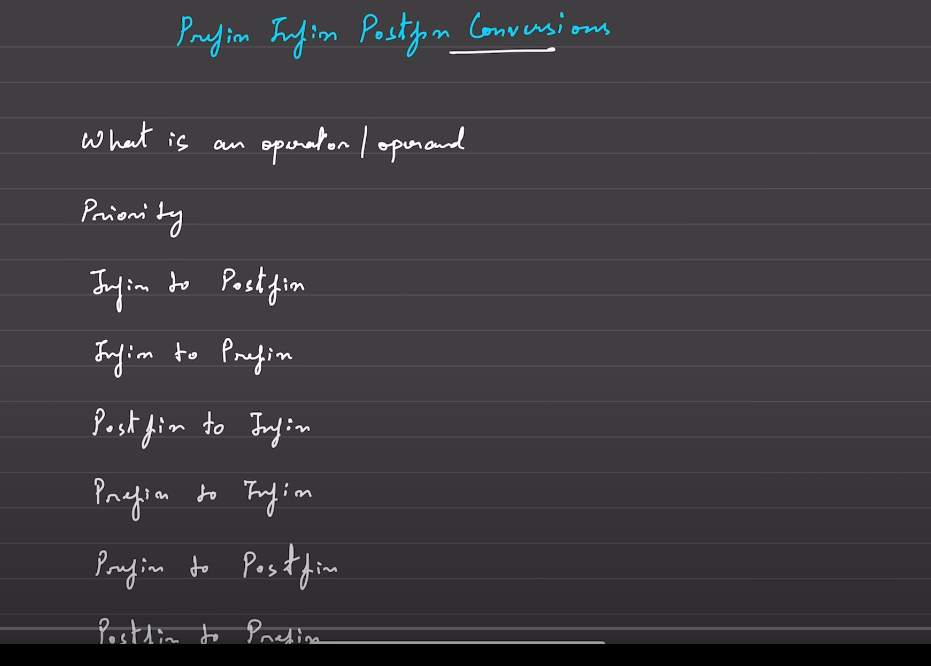 Prefix Infix Postfix Conversions
What is an operator/operand
Priority
Infix to Postfix
Infix to Prefix
Postfix to Infix
Prefix to Infix
Prefix to Postfix
Postfix to Prefix